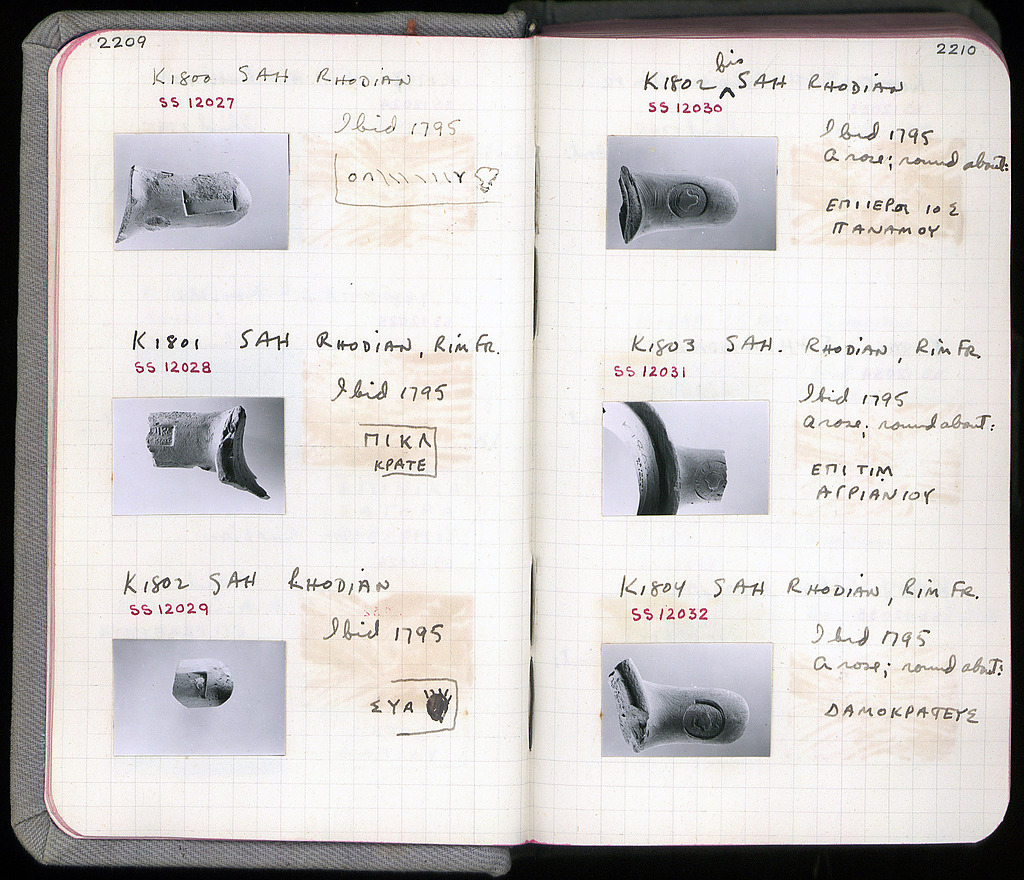 2209
K1800 SAH RHODIAN
SS 12027
Ibid 1795
K1801 SAH RHODIAN, RIM FR.
SS 12028
Ibid 1795
ΠΙΚΛ
ΚΡΑΤΕ
K1802 SAH RHODIAN
SS 12029
Ibid 1795
ΣΥΑ
2210
K1802 bis SAH RHODIAN
SS 12030
Ibid 1795
A rose; round about:
ΠΑΝΑΜΟΥ
K1803 SAH. RHODIAN, RIM FR.
SS 12031
Ibid 1795
A rose; round about:
ΕΠΙ ΤΙΜ
ΑΓΡΙΑΝΙΟΥ
K1804 SAH RHODIAN, RIM FR.
SS 12032
Ibid 1795
A rose; round about:
ΔΑΜΟΚΡΑΤΕΥΣ